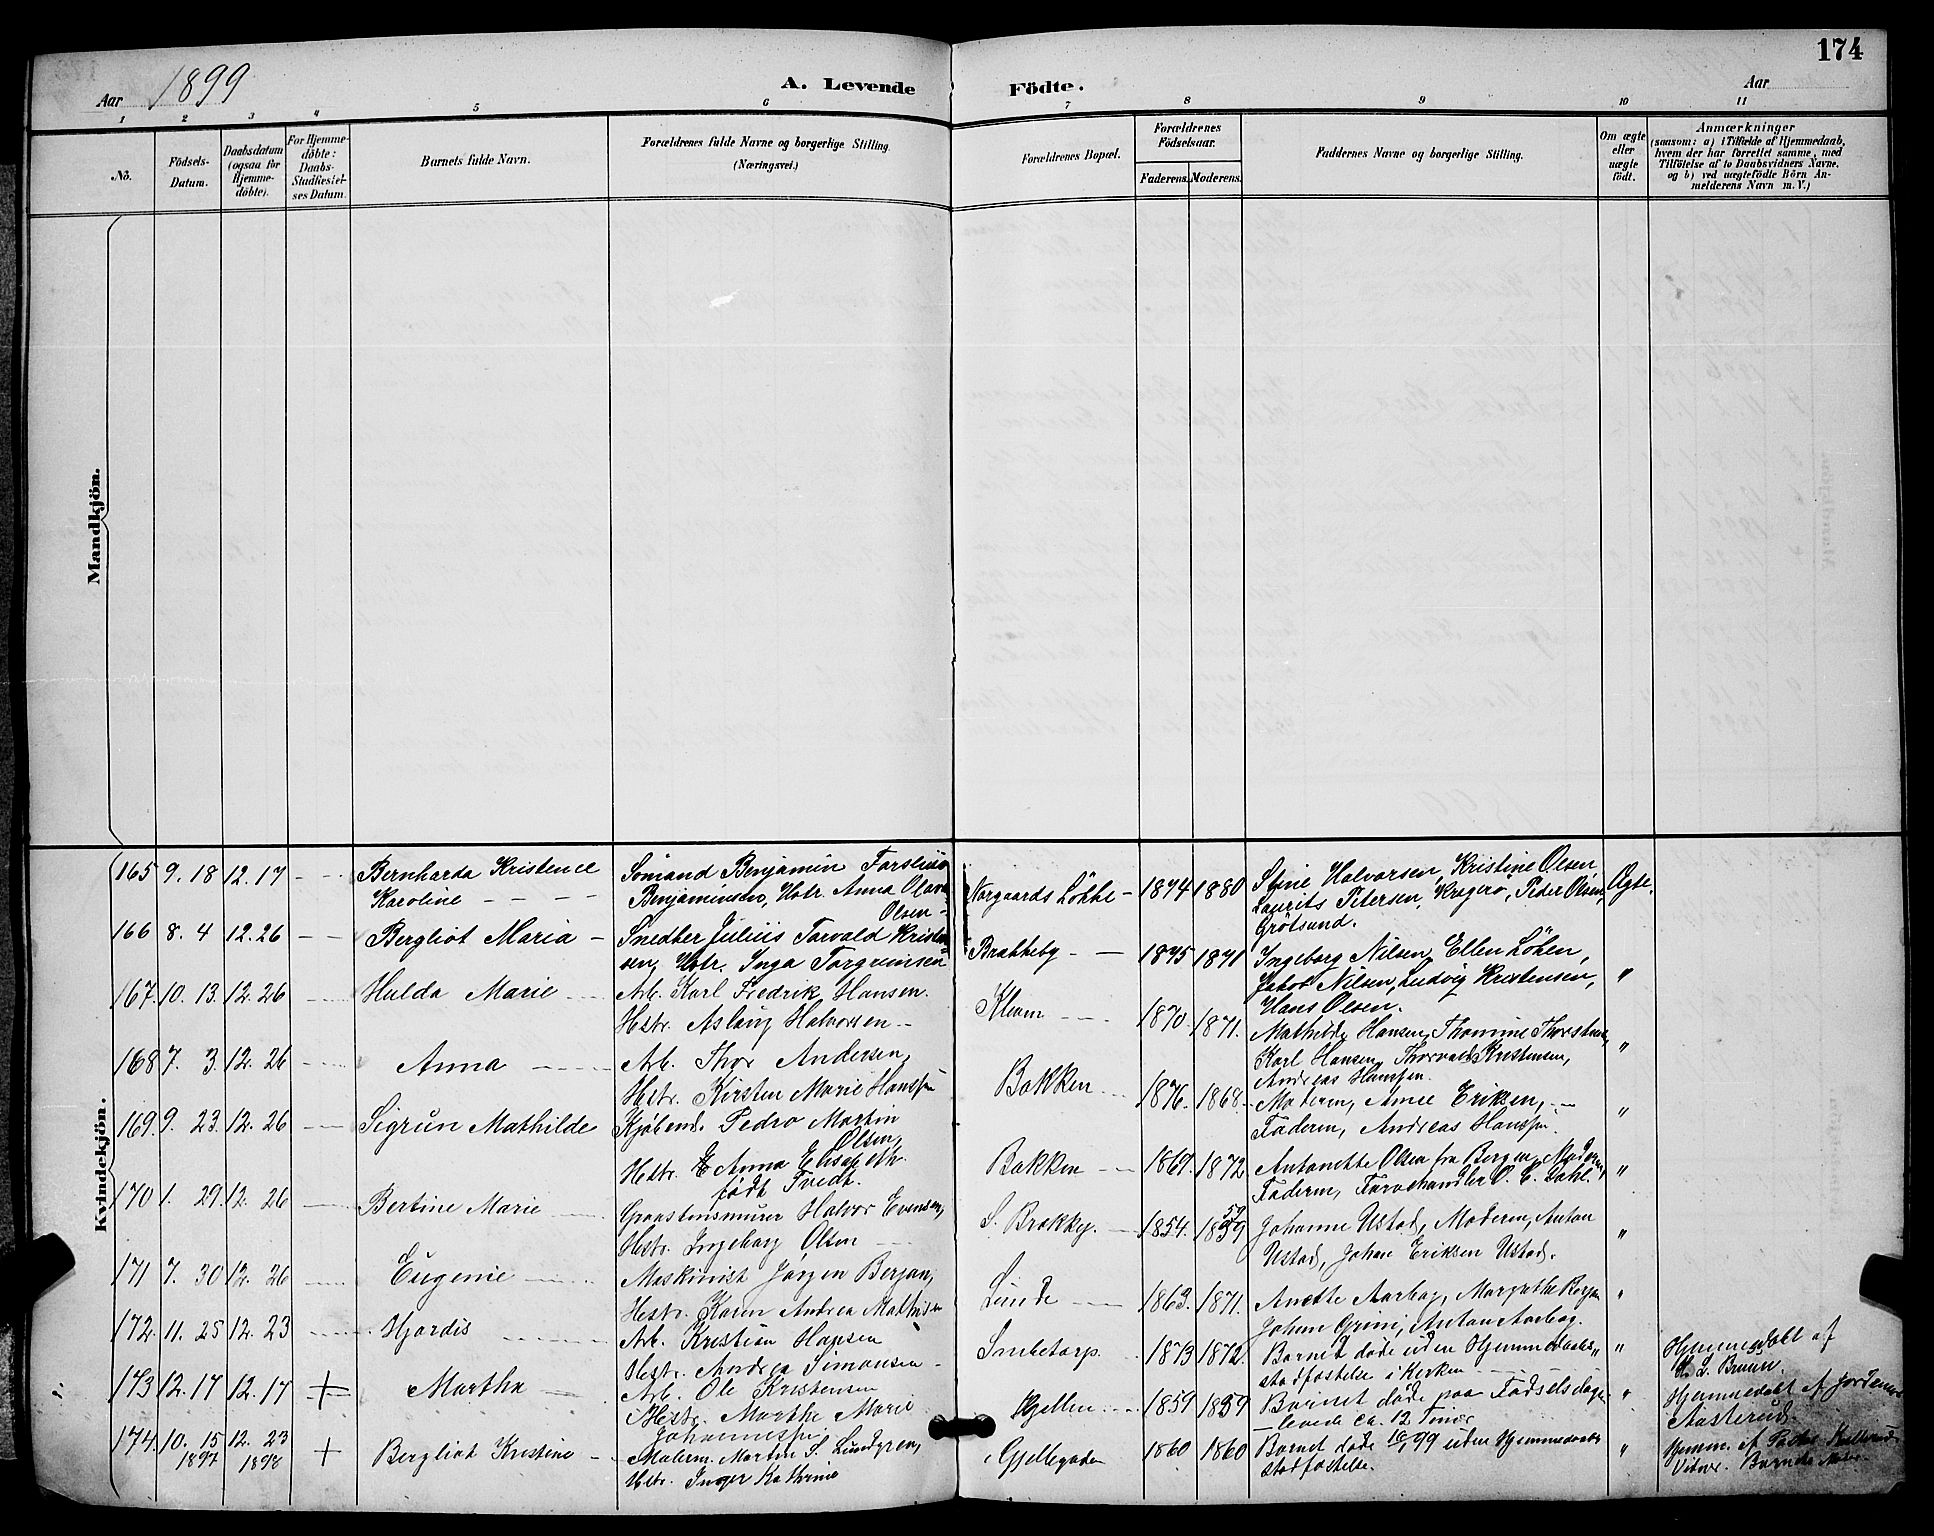 174
Aar 1899
A. Levende Födte.
Aar
1 2 3 4 5 6 7 8 9 10 11
No.
Födsels-Datum.
Daabsdatum (ogsaa for Hjemmedöbte).
For Hjemmedöbte: Daabs-Stadfæstelses Datum.
Barnets fulde Navn.
Forældrenes fulde Navne og borgerlige Stilling. (Næringsvei.)
Forældrenes Bopæl.
Forældrenes Födselsaar.
Faderens. Moderens.
Faddernes Navne og borgerlige Stilling.
Om ægte eller uægte födt.
Anmærkninger
(saasom: a) i Tilfælde af Hjemmedaab, hvem der har forrettet samme, med Tilföielse af to Daabsvidners Navne. og b) ved uægtefödte Börn Anmelderens Navn m. V.)
Mandkjön.
Kvindekjön.
165 9. 18 12. 17 - - Bernharda Kristence Karoline - - - Sömand Benjamin Benjaminsen, Hstr. Anna Olava Olsen - Norgaards Løkke - 1874 1880 Stine Halvorsen, Kristine Olsen, Laurits Petersen, Kragerø, Peder Olsen, Grötsund. Ægte.
166 8. 4 12. 26 - - Bergliot Maria - Snedker Julius Torvald Kristensen, Hstr. Inga Torgrimsen Brækkeby - - 1875 1871 Ingeborg Nilsen, Ellen Løken, Jakob Nilsen, Ludvig Kristensen, Hans Olsen. "
167. 10. 13. 12. 26 Hulda Marie Arb. Karl Fredrik Hansen. Hstr. Aslaug Halvorsen - Kleven 1870. 1871. Mathilde Hansen, Thomine Thorstens, Karl Hansen, Thorvald Kristensen, Andreas Hanssen. "
168 7. 3. 12. 26 Anna Arb. Thor Andersen, Hstr. Kirsten Marie Hanssen Bakken 1876. 1868. Moderen, Anne Eriksen, Faderen, Andreas Hanssen. "
169. 9. 23. 12. 26 Sigrun Mathilde Kjöbmd. Pedro Martin Olsen, Hstr. Anna Elisabeth født Tvedt. Bakken 1869. 1872 Antonette Olsen fra Bergen, Moderen, Faderen, Farvehandler O. E. Dahl. "
170 1. 29. 12. 26 Bertine Marie Graastensmurer Halvor Evensen, Hstr. Ingeborg Olsen S. Brækky. 1854. 1859 Johanne Ustad, Moderen, Anton Ustad, Johan Eriksen Ustad. "
171 7. 30 12. 26 Eugenie Maskinist Jørgen Berjan, Hstr. Karen Andrea Mathisen Lunde 1863. 1871. Anette Aarbog, Margrethe Johan Grini, Anton Aarbog. "
172. 11. 25 12. 23 Hjordis Arb. Kristian Hansen Hstr. Andrea Simonsen - Smketorp 1873 1872. Barnet døde uden Hjemmedaabsstadfæstelse i Kirken " Hjemmedøbt af L. Bruun.
173 12. 17 12. 17 + Martha Arb. Ole Kristensen Hstr. Marthe Marie Johannessen Gjellen 1859 1859 Barnet døde paa Fødselsdagen - levede ca. 12 Timer " Hjemmedøbt af Jordemor Aasterud.
174. 10. 15 1897 12. 23 1898 + Bergliot Kristine - Malerm. Martin S. Lundgren, Hstr. Inger Kathrine Gjellegaden 1860 1860 Barnet døde 16/1 99 uden Hjemmedaabsstadfæstelse. " Hjemm. af Vidner. Barnets Moder.